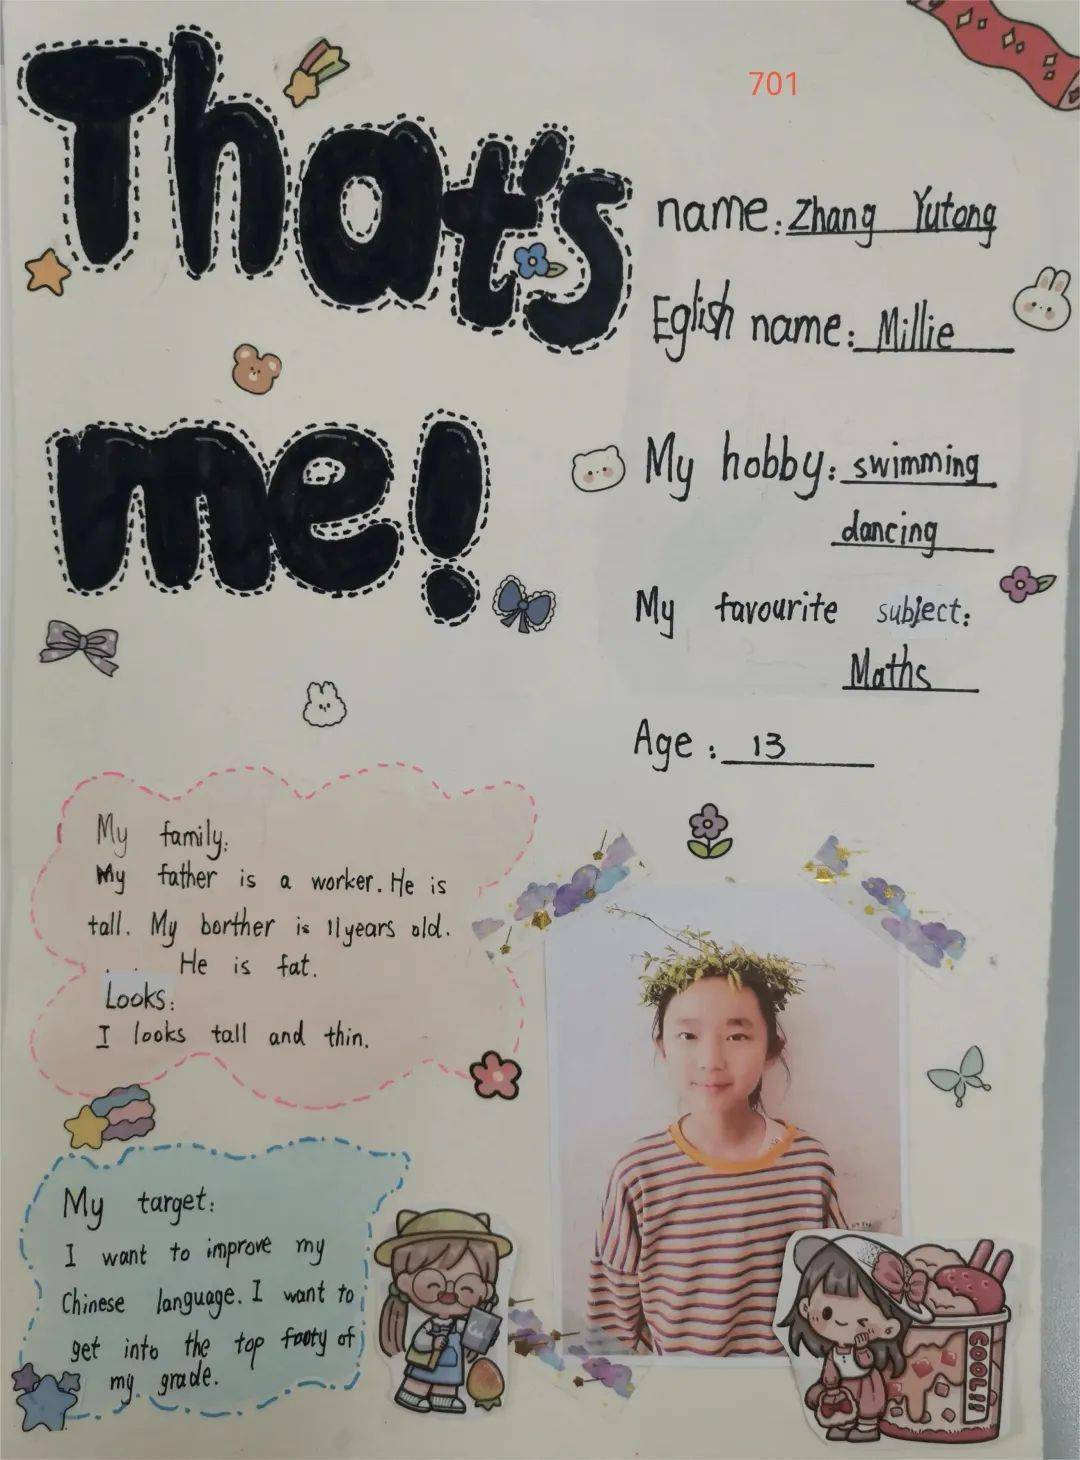 That's
me!
701
name: Zhang Yutong
Eglish name: Millie
My hobby: swimming
dancing
My favourite subject:
Maths
Age: 13
My family:
My father is a worker. He is
tall. My borther is 11years old.
He is fat.
Looks:
I looks tall and thin.
My target:
I want to improve my
Chinese language. I want to
get into the top footy of
my grade.
COOL!!